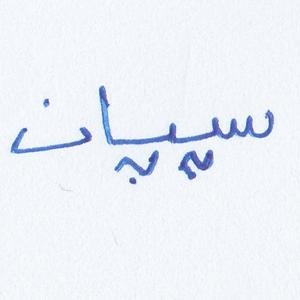 سپپان